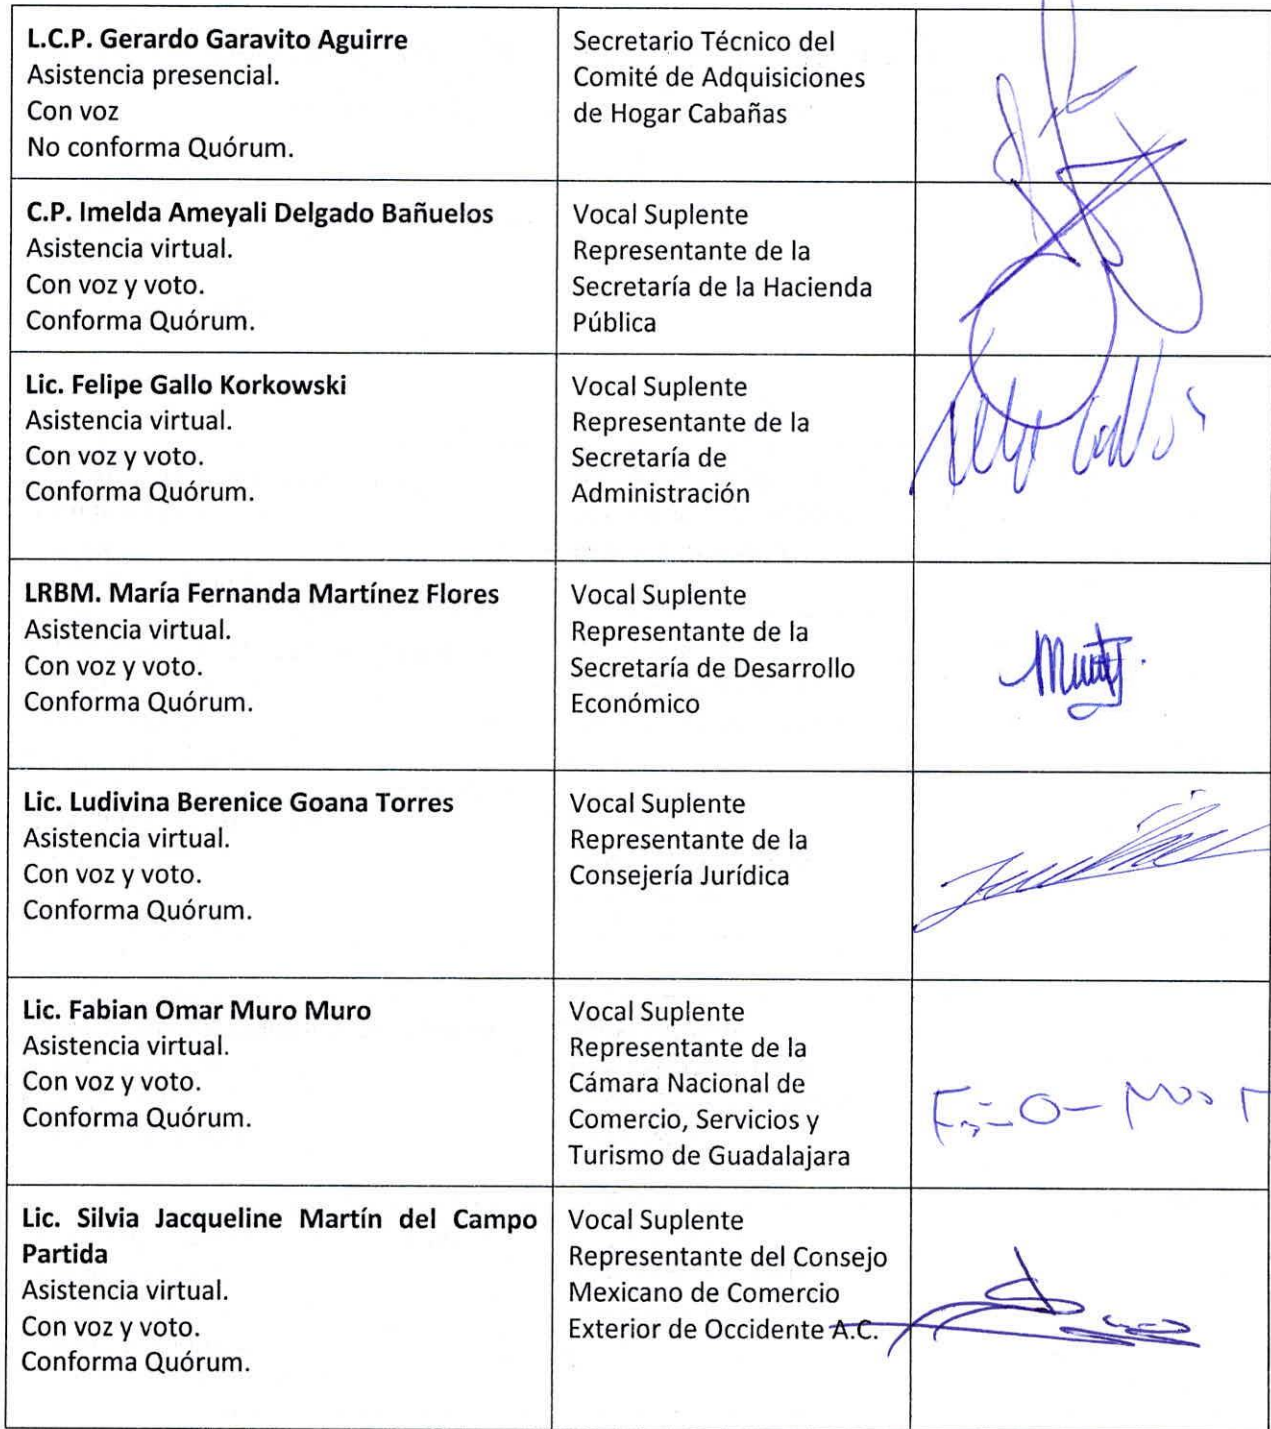 L.C.P. Gerardo Garavito Aguirre
Asistencia presencial.
Con voz
No conforma Quórum.
Secretario Técnico del
Comité de Adquisiciones
de Hogar Cabañas
C.P. Imelda Ameyali Delgado Bañuelos
Asistencia virtual.
Con voz y voto.
Conforma Quórum.
Vocal Suplente
Representante de la
Secretaría de la Hacienda
Pública
Lic. Felipe Gallo Korkowski
Asistencia virtual.
Con voz y voto.
Conforma Quórum.
Vocal Suplente
Representante de la
Secretaría de
Administración
LRBM. María Fernanda Martínez Flores
Asistencia virtual.
Con voz y voto.
Conforma Quórum.
Vocal Suplente
Representante de la
Secretaría de Desarrollo
Económico
Lic. Ludivina Berenice Goana Torres
Asistencia virtual.
Con voz y voto.
Conforma Quórum.
Vocal Suplente
Representante de la
Consejería Jurídica
Lic. Fabian Omar Muro Muro
Asistencia virtual.
Con voz y voto.
Conforma Quórum.
Vocal Suplente
Representante de la
Cámara Nacional de
Comercio, Servicios y
Turismo de Guadalajara
Lic. Silvia Jacqueline Martín del Campo
Partida
Asistencia virtual.
Con voz y voto.
Conforma Quórum.
Vocal Suplente
Representante del Consejo
Mexicano de Comercio
Exterior de Occidente A.C.